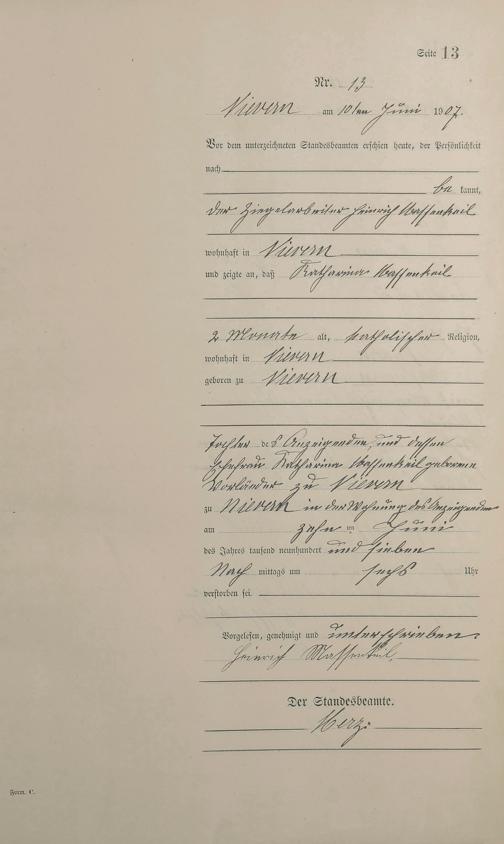 Seite 13
Nr. 13
Nievern am 10ten Juni 1907.
Vor dem unterzeichneten Standesbeamten erschien heute, der Persönlichkeit
nach
be kannt,
der Ziegelarbeiter Heinrich Massenkeil
wohnhaft in Nievern
und zeigte an, daß Katharina Massenkeil
2 Monate alt, katholischer Religion,
wohnhaft in Nievern
geboren zu Nievern
Tochter des Anzeigenden, und dessen
Ehefrau Katharina Massenkeil geborene
Vorländer zu Nievern
zu Nievern in der Wohnung des Anzeigenden
am zehn ten Juni
des Jahres tausend neunhundert und sieben
Nach mittags um sechs Uhr
verstorben sei.
Vorgelesen, genehmigt und unterschrieben.
Heinrich Massenkeil
Der Standesbeamte.
Herz.
Form. C.